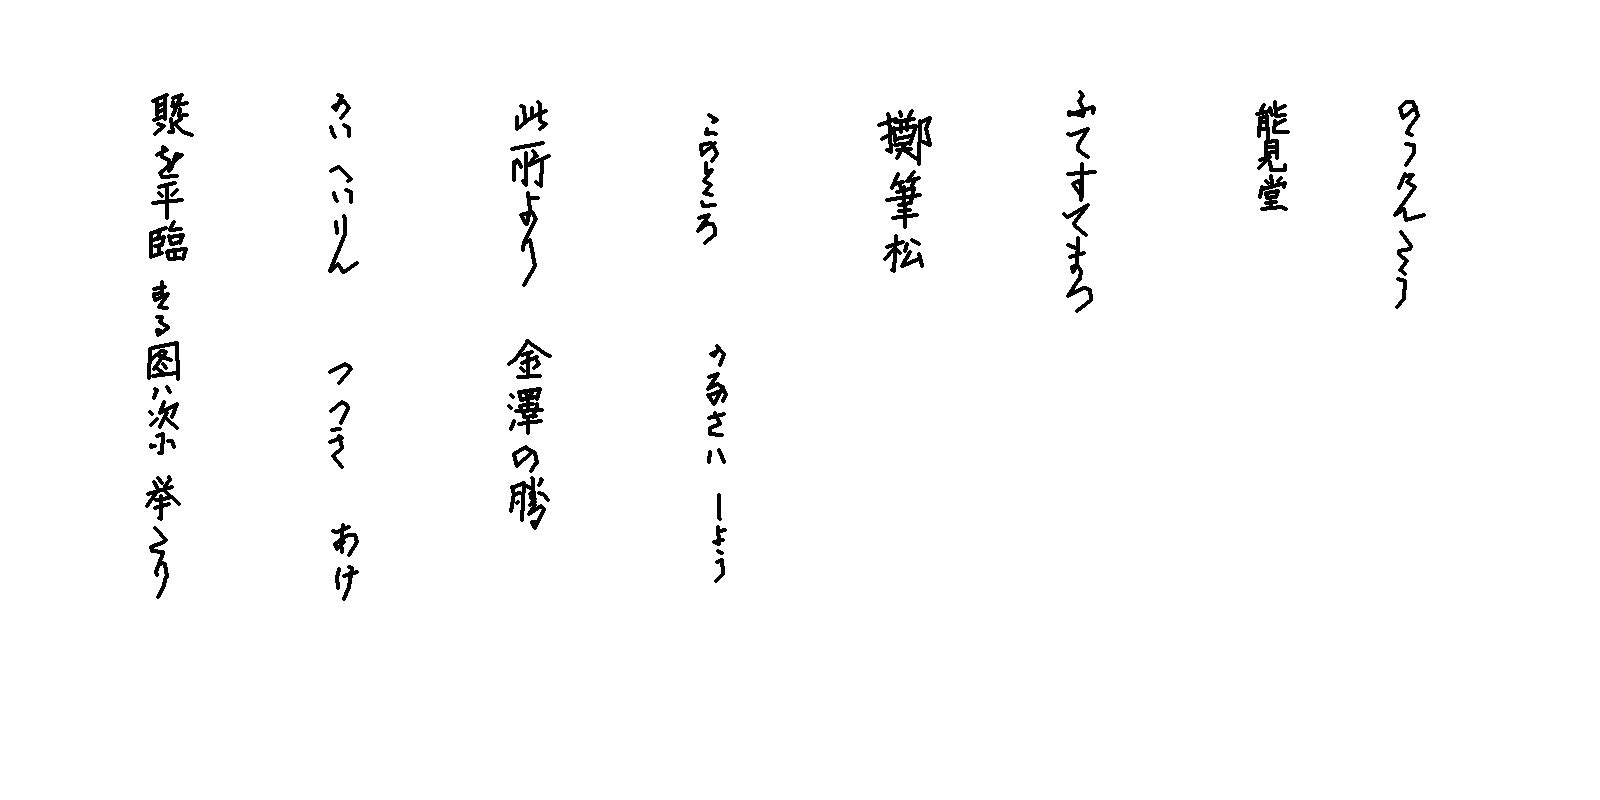 のうけんたう
能見堂
ふてすてまつ
擲筆松
このところ かなさハ しよう
此所より 金澤の勝
かい へいりん つつき あけ
槩を平臨する図ハ次に挙たり